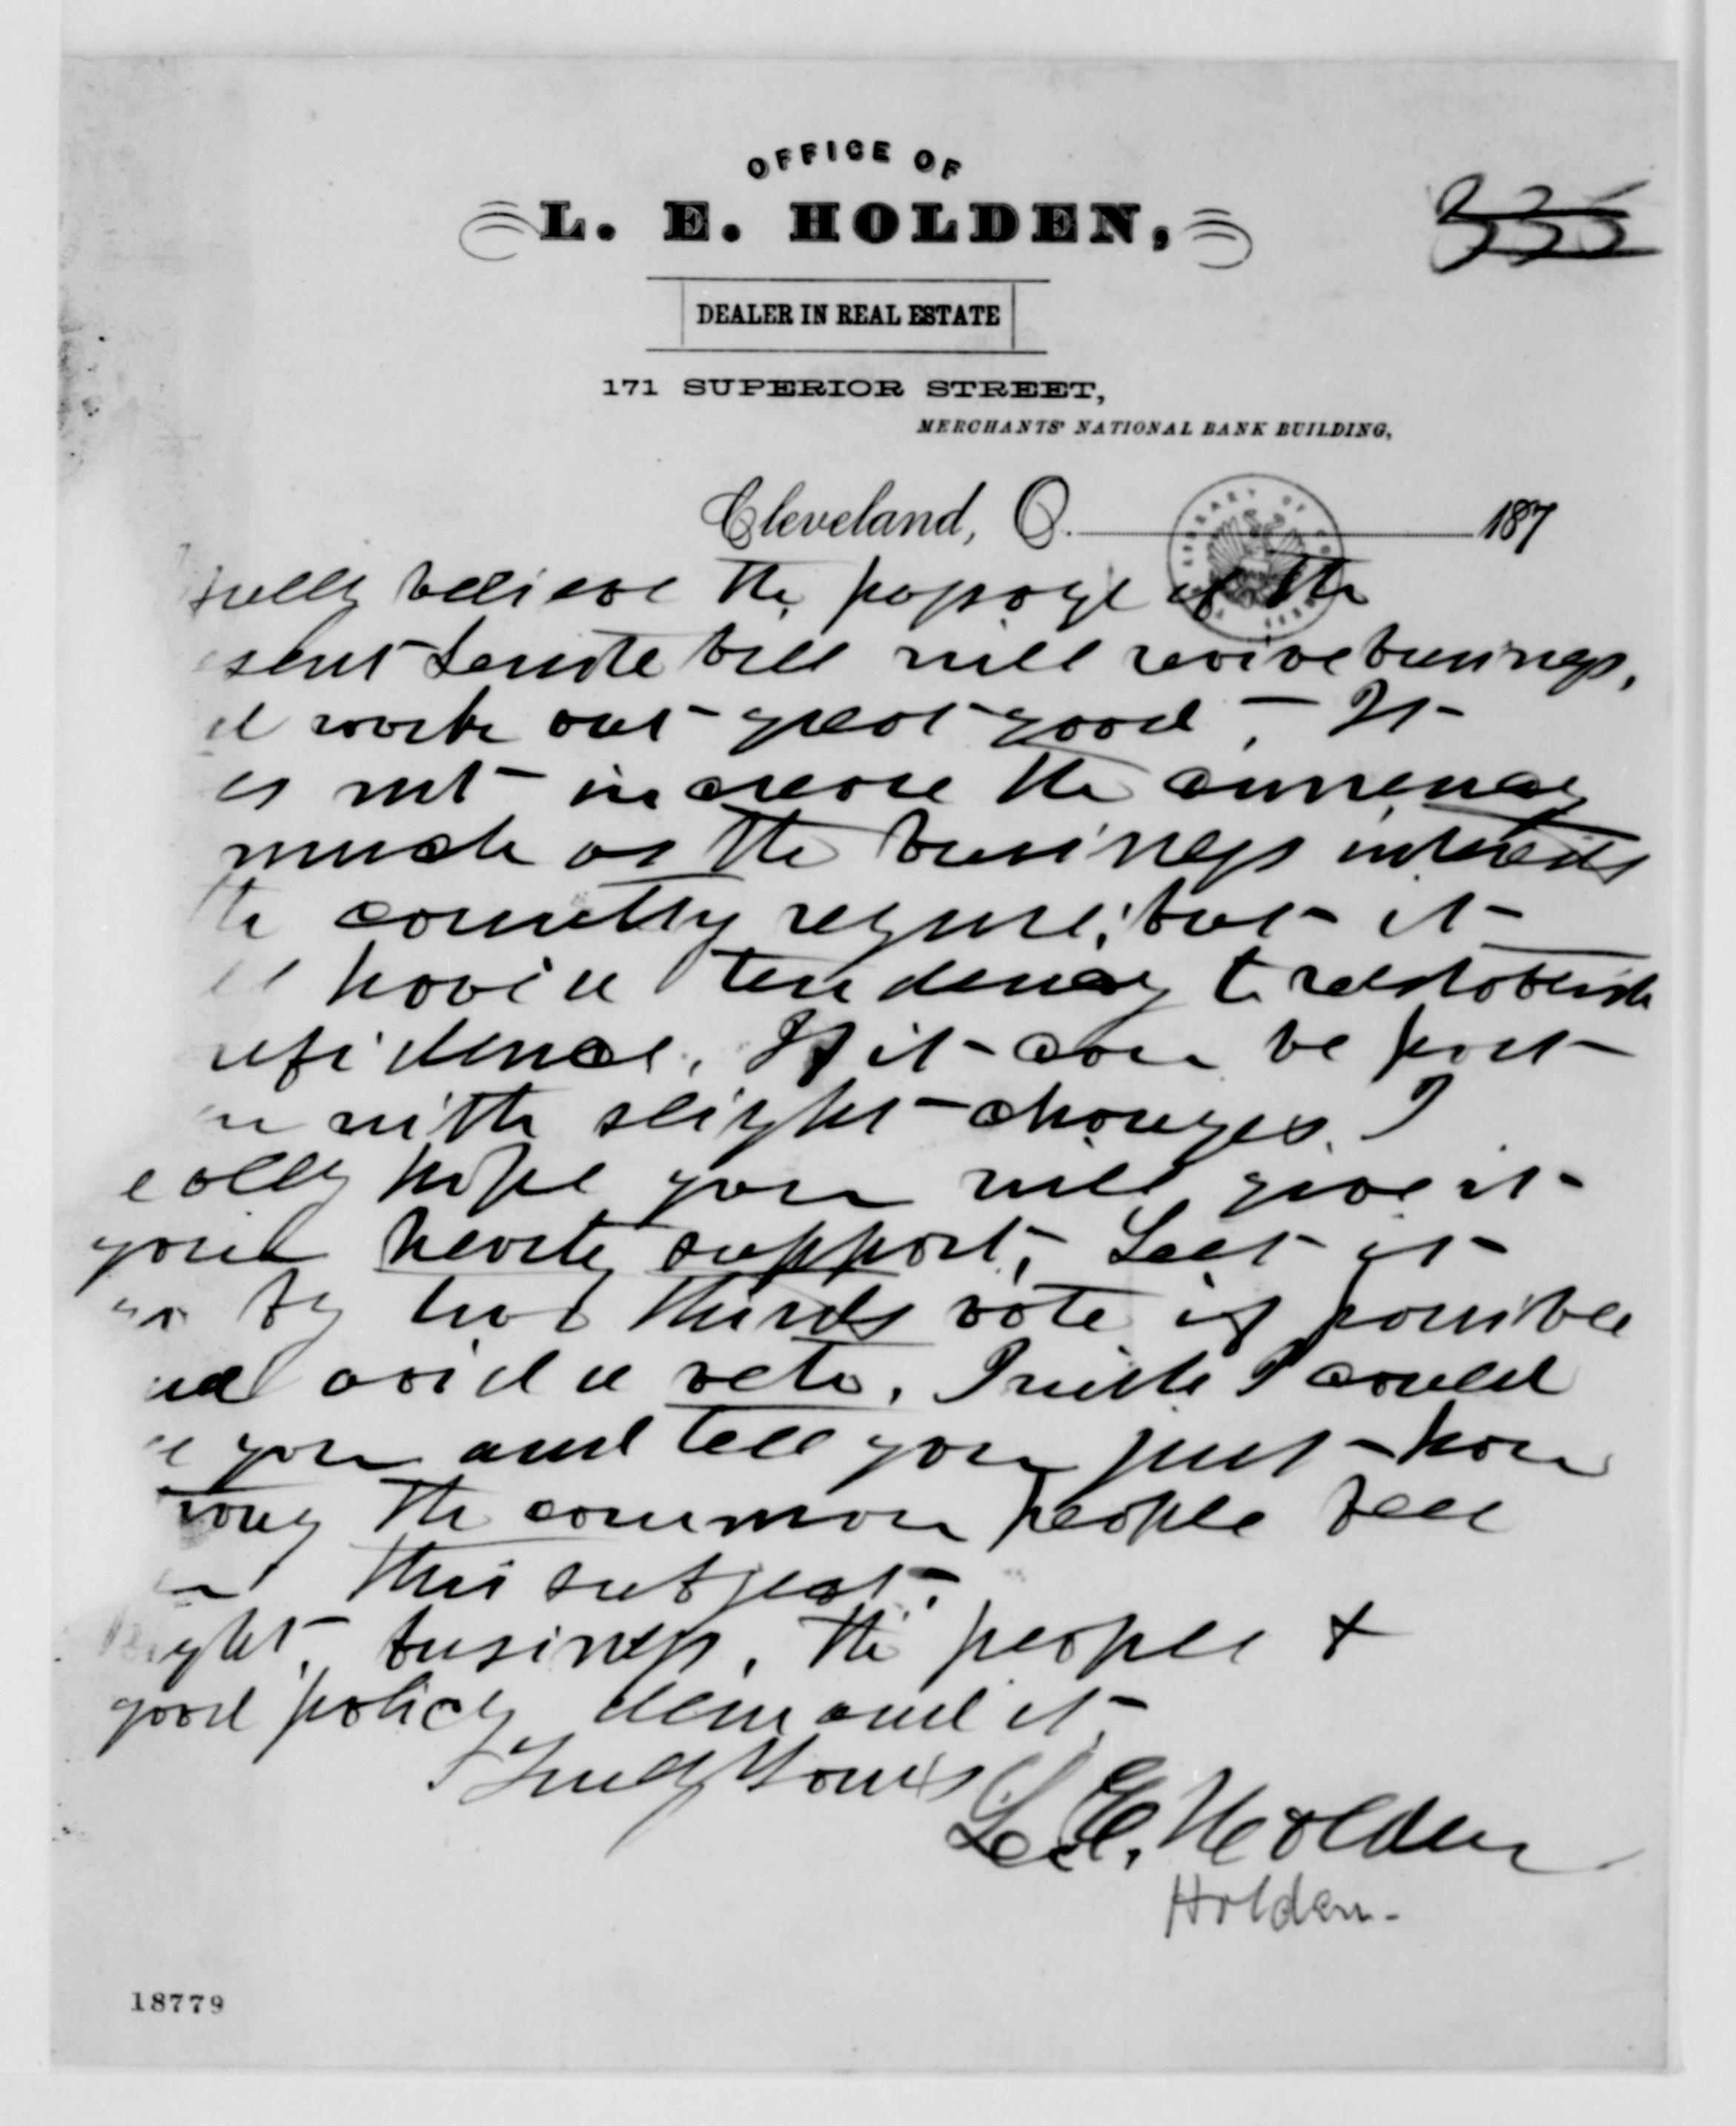 OFFICE OF
L. E. HOLDEN,
335
DEALER IN REAL ESTATE
171 SUPERIOR STREET,
MERCHANTS' NATIONAL BANK BUILDING,
Cleveland, O. 187
fully believe the passage of the
sent Senate bill will revive business,
d work out great good, It
es not increase the currency
much as the business interests
the country require; but it
ll have a tendency to reestablish
nfidence. If it can be put
in with slight changes. I
eally hope you will give it
your hearty support, Lest it
by two thirds vote if possible
nd avoid a veto. I wish I could
e you and tell you just how
rong the common people feel
on this subject.
Right, business, the people &
good policy demand it
Truly Yours
L. E. Holden
Holden.
18779